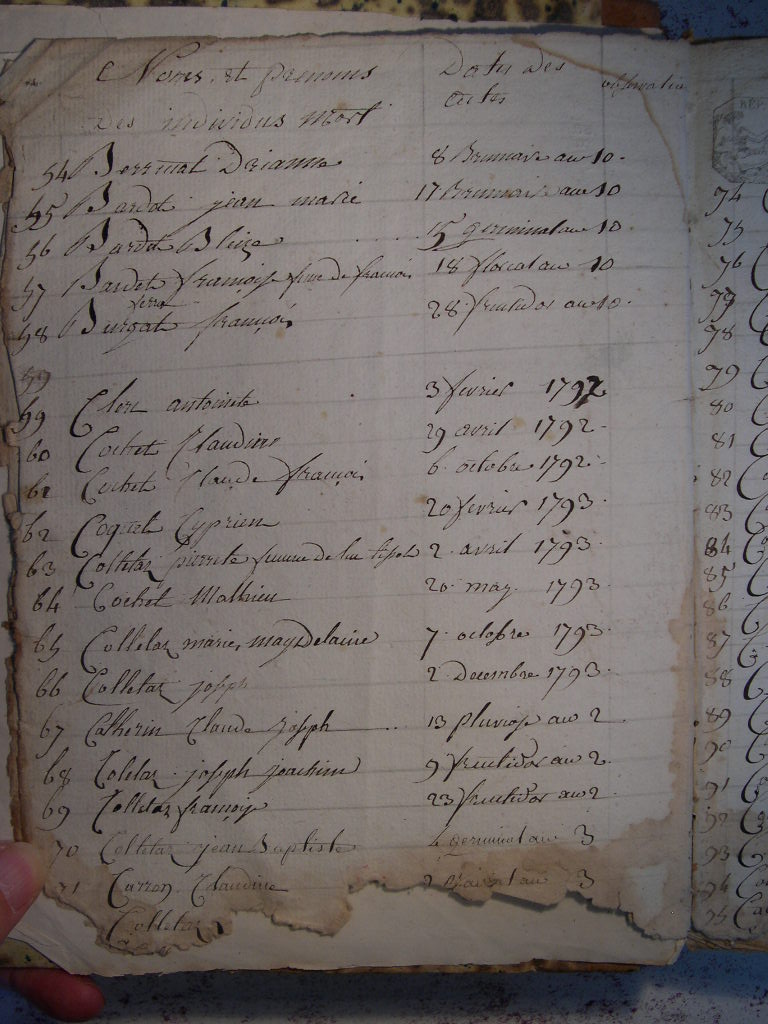 Noms et prenoms Dates des observation
Des individus mort actes
54 Drianne 8 Brumaire an 10.
55 Bardot jean marie 17 Brumaire an 10
56 Bardot Blaise 15 germinal an 10
57 Bardet françoise fme de françois 18 floreal an 10
58 Burgat françois 28 fructidor an 10.
59
59 Clerc antoinete 3 fevrier 1792
60 Cochet Claudine 29 avril 1792
61 Cochet Claude françois 6 octobre 1792
62 Coquet Cyprien 20 fevrier 1793
63 Colletaz pierrete femme de 2 avril 1793
64 Cochet Mathieu 20 may 1793
65 Colletaz marie magdelaine 7 octobre 1793
66 Colletaz joseph 2 Decembre 1793
67 Catherin Claude joseph 13 pluviose an 2
68 Coletaz joseph joachim 9 fructidor an 2
69 Colletaz françoise 23 fructidor an 2
70 Colletaz jean Baptiste 4 germinal an 3
71 Carron Claudine an 3
Colletaz
74
75
76
77
78
79
80
81
82
83
84
85
86
87
88
89
90
91
92
93
94
95